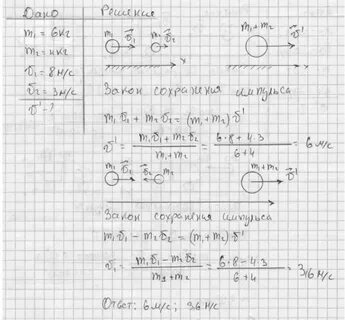 Дано
Решения
m₁ = 6кг
m₂ = 4кг
v₁ = 8м/с
v₂ = 3м/с
v' - ?
m₁ v₁ m₂ v₂ m₁+m₂ v'
x
Закон сохранения импульса
m₁v₁ + m₂v₂ = (m₁+m₂)·v'
v' = (m₁v₁+m₂v₂)/(m₁+m₂) = (6·8+4·3)/(6+4) = 6 м/с
m₁ v₁ v₂ m₂ m₁+m₂ v'
Закон сохранения импульса
m₁v₁ - m₂v₂ = (m₁+m₂)·v'
v₁ = (m₁v₁-m₂v₂)/(m₁+m₂) = (6·8-4·3)/(6+4) = 3,6 м/с
Ответ: 6 м/с; 3,6 м/с